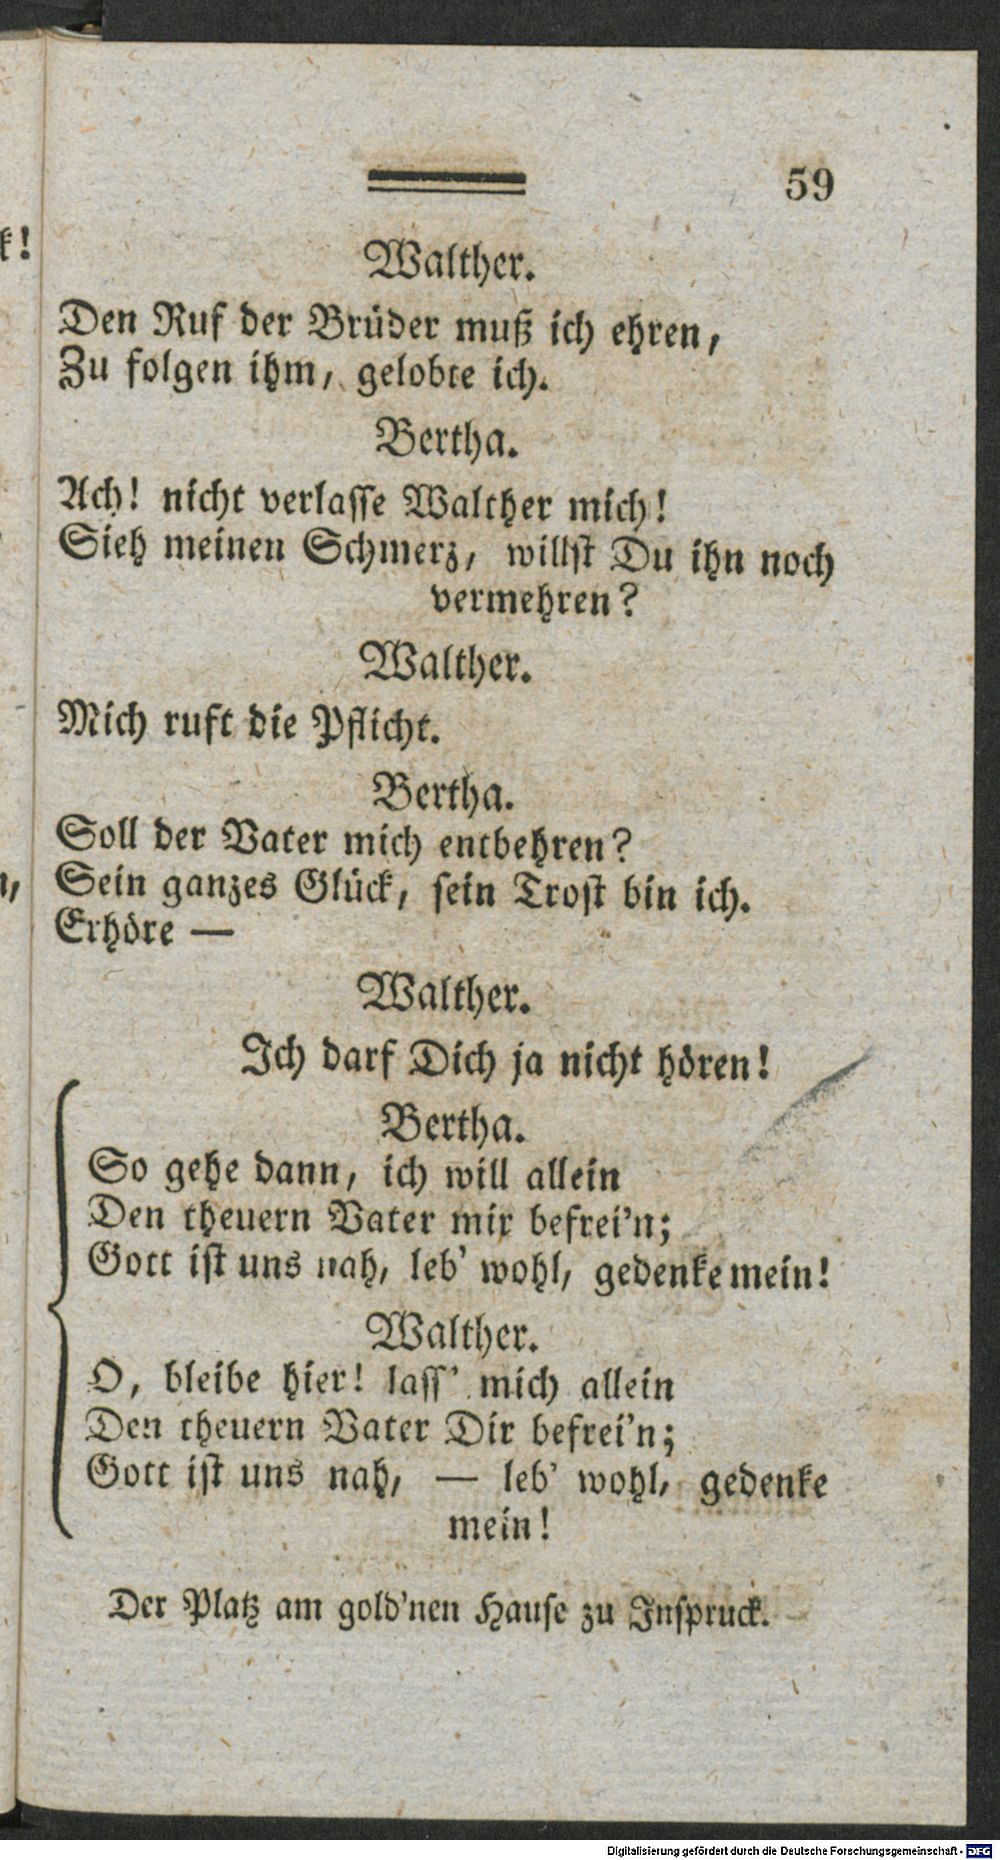 59
k!
Walther.
Den Ruf der Brüder muß ich ehren,
Zu folgen ihm, gelobte ich.
Bertha.
Ach! nicht verlasse Walther mich!
Sieh meinen Schmerz, willst Du ihn noch
vermehren?
Walther.
Mich ruft die Pflicht.
Bertha.
Soll der Vater mich entbehren?
Sein ganzes Glück, sein Trost bin ich.
Erhöre —
Walther.
Ich darf Dich ja nicht hören!
Bertha.
So gehe dann, ich will allein
Den theuern Vater mir befrei'n;
Gott ist uns nah, leb' wohl, gedenke mein!
Walther.
O, bleibe hier! lass' mich allein
Den theuern Vater Dir befrei'n;
Gott ist uns nah, — leb' wohl, gedenke
mein!
Der Platz am gold'nen Hause zu Inspruck.
Digitalisierung gefördert durch die Deutsche Forschungsgemeinschaft - DFG